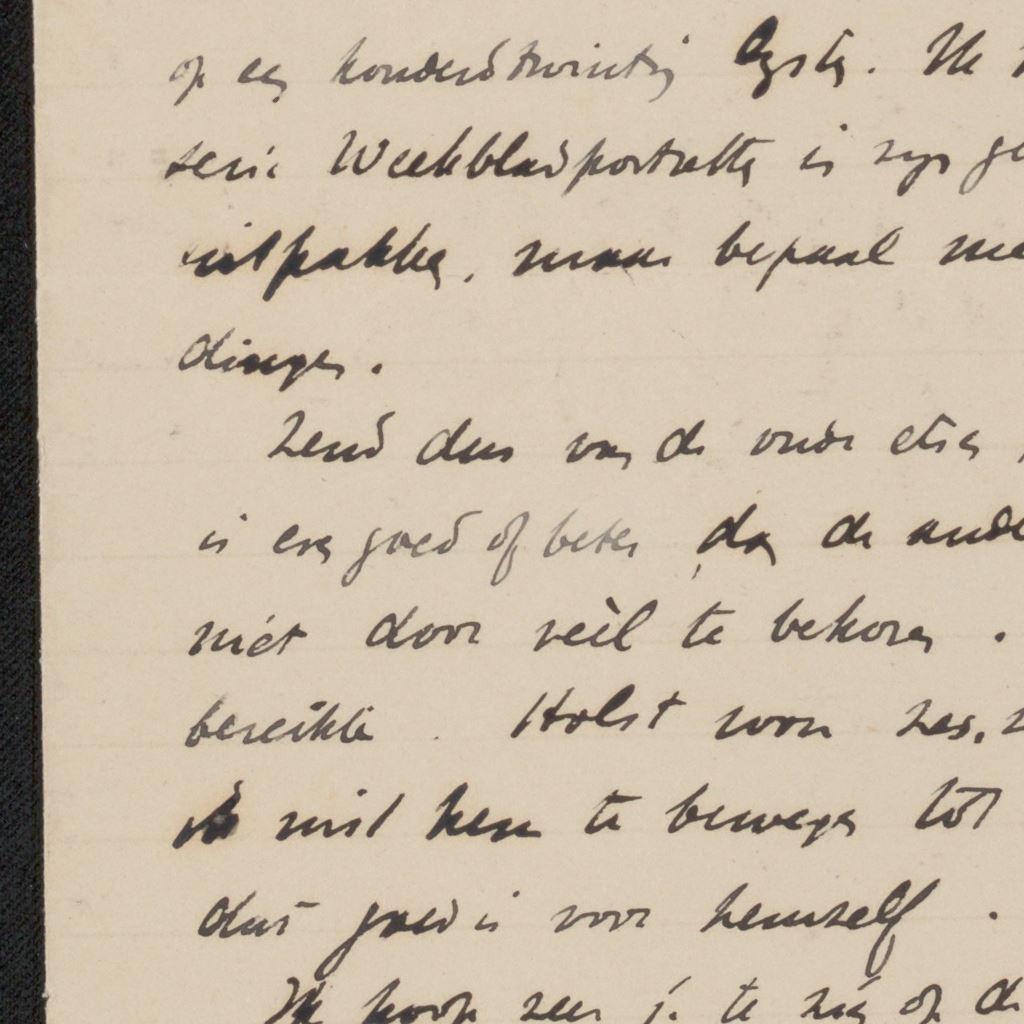 op een honderdtwintig lijsten. Ik
serie Weekbladportretten is zijn ge
uitpakken, maar bepaal me
dingen.
Zend dus van de oude etsen
is even goed of beter dan de ande
niet door veel te bekoren.
bereikte. Holst won zes,
ik wist hem te bewegen tot
dat goed is voor hemzelf.
Ik hoop zeer je te zien op d